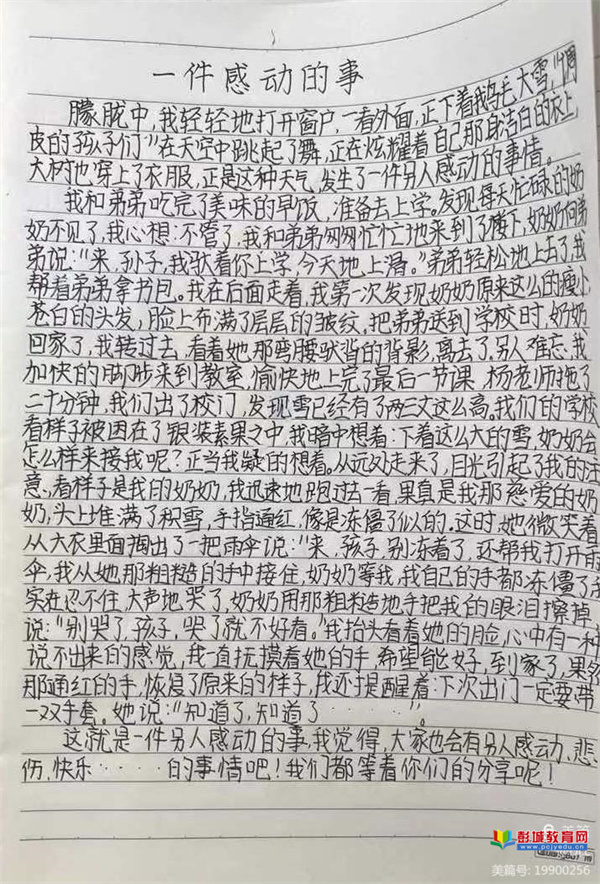 一件感动的事
朦胧中,我轻轻地打开窗户,一看外面,正下着鹅毛大雪,"调
皮的孩子们"在天空中跳起了舞,正在炫耀着自己那身洁白的衣上,
大树也穿上了衣服,正是这种天气,发生了一件另人感动的事情。
我和弟弟吃完了美味的早饭,准备去上学。发现每天忙碌的奶
奶不见了,我心想:不管了,我和弟弟匆匆忙忙地来到了楼下,奶奶向弟
弟说:"来,孙子,我驮着你上学,今天地上滑。"弟弟轻松地上去了,我
帮着弟弟拿书包。我在后面走着,我第一次发现,奶奶原来这么的瘦小,
苍白的头发,脸上布满了层层的皱纹,把弟弟送到学校时,奶奶
回家了,我转过去,看着她那弯腰驮背的背影,离去了,另人难忘,我
加快的脚步来到教室,愉快地上完了最后一节课,杨老师拖了
二十分钟,我们出了校门,发现雪已经有了两三丈这么高,我们的学校
看样子被困在了银装素果之中,我暗中想着:下着这么大的雪,奶奶会
怎么样来接我呢?正当我疑的想着。从远处走来了,目光引起了我的注
意,看样子是我的奶奶,我迅速地跑过去一看,果真是我那慈爱的奶
奶,头上堆满了积雪,手指通红,像是冻僵了似的,这时,她微笑着
从大衣里面掏出了一把雨伞说:"来,孩子,别冻着了,还帮我打开雨
伞,我从她那粗糙的手中接住,奶奶等我,我自己的手都冻僵了,我
实在忍不住,大声地哭了,奶奶用那粗糙地手把我的眼泪擦掉
说:"别哭了,孩子,哭了就不好看。"我抬头看着她的脸,心中有一种
说不出来的感觉,我一直抚摸着她的手,希望能好,到家了,果然
那通红的手,恢复了原来的样子,我还提醒着:下次出门一定要带
一双手套。她说:"知道了,知道了……"。
这就是一件另人感动的事,我觉得,大家也会有另人感动、悲
伤、快乐……的事情吧!我们都等着你们的分享呢!
彭城教育网
www.pcjyedu.cn
美篇号: 19900256